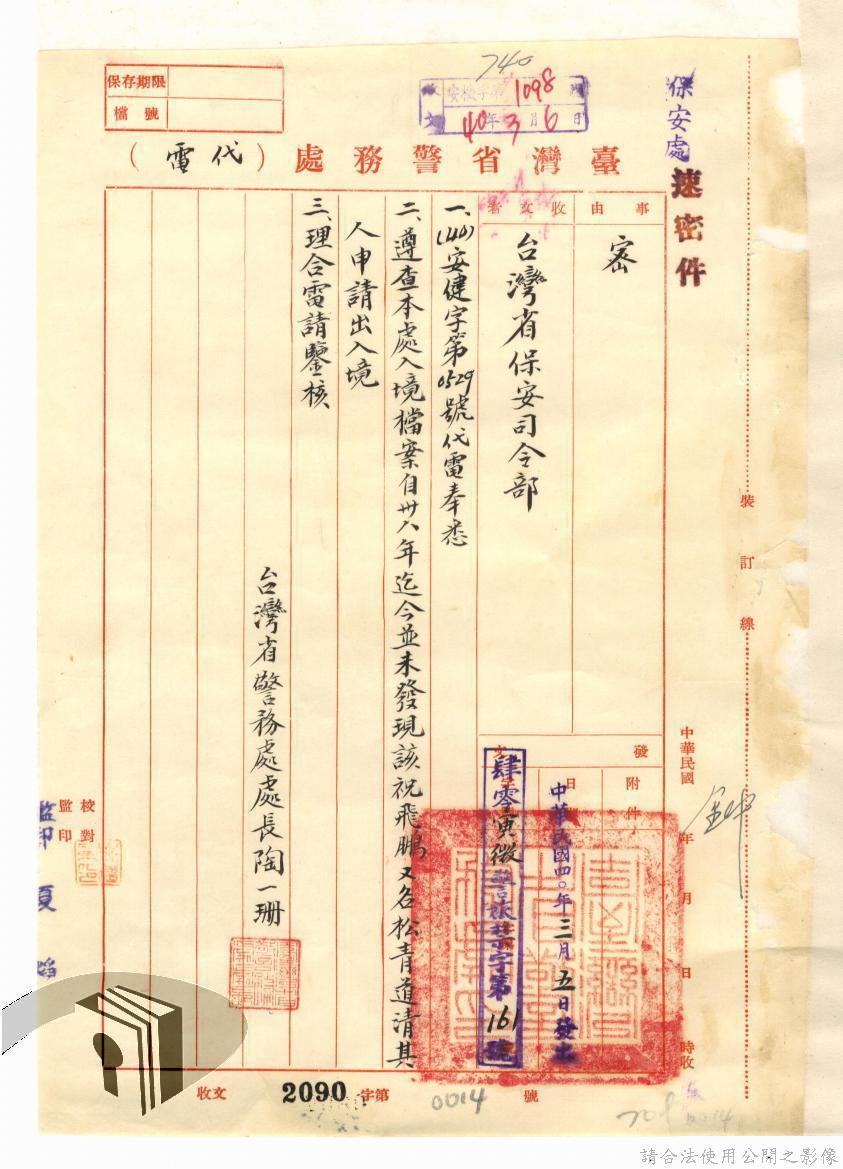 740
保安處
速密件
保存期限
檔號
安檢字第1098號
40年3月6日
臺灣省警務處(代電)
事由
密
收文者
台灣省保安司令部
一、(40)安健字第0529號代電奉悉
二、遵查本處入境檔案自卅八年迄今並未發現該祝飛鵬又名松青道清其
人申請出入境
三、理合電請鑒核
台灣省警務處處長陶一珊
發
附件
日
中華民國四〇年三月五日發出
肆零寅微警旅禁字第161號
裝訂線
中華民國 年 月 日 時收
校對
監印
監印
收文
字第2090號
0014
請合法使用公開之影像